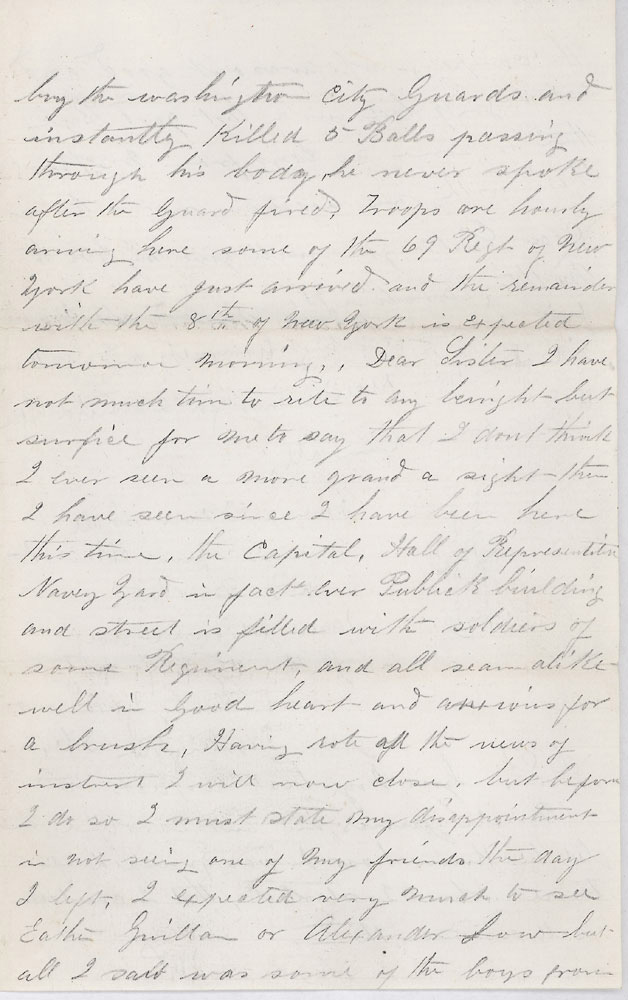 buy the washington City Guards and
instantly Killed 5 Balls passing
through his body, he never spoke
after the Guard fired, Troops are hourly
ariving here some of the 69 Regt of New
York have just arrived and the remainder
with the 8th of New York is expected
tomorrow morning,, Dear Sister I have
not much time to rite to any but
surfice for me to say that I dont think
I ever seen a more grand a sight then
I have seen since I have been here
this time, the Capital, Hall of Representitive
Navey Yard in fact ever Publick building
and street is filled with soldiers of
some Regiment, and all seam alike
well in Good heart and anxious for
a brush, Having rote all the news of
intrest I will now close, but before
I do so I must state my disappointment
in not seeing one of my friends the day
I left, I expected very much to see
Eather or Alexander Low but
all I saw was some of the boys from